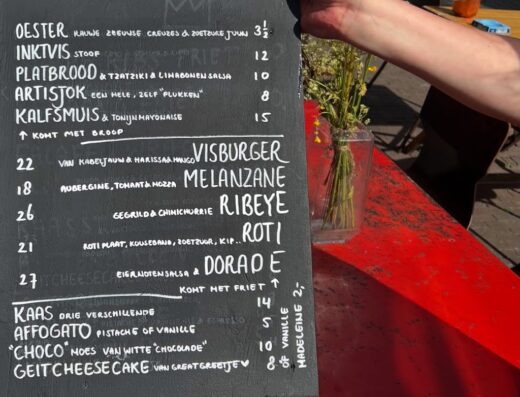 OESTER RAUWE ZEEUWSE CREUZES & ZOETZURE JUUN 3½
INKTVIS STOOF 12
PLATBROOD & TZATZIKI & LIMABONENSALSA 10
ARTISJOK EEN HELE, ZELF "PLUKKEN" 8
KALFSMUIS & TONIJNMAYONAISE 15
↑ KOMT MET BROOD
22 VAN KABELJAUW & HARISSA & MANGO VISBURGER
18 AUBERGINE, TOMAAT & MOZZA MELANZANE
26 GEGRILD & CHIMICHURRIE RIBEYE
21 ROTI PLAAT, KOUSEBAND, ZOETZUUR, KIP.. ROTI
27 EIERNOTENSALSA & DORADE
KOMT MET FRIET ↑
KAAS DRIE VERSCHILLENDE 14
AFFOGATO PISTACHE OF VANILLE 5
"CHOCO" NOES VAN WITTE "CHOCOLADE" 10
GEITCHEESECAKE VAN GREAT GREETJE ♥ 8
OF VANILLE
MADELEINE 2,-